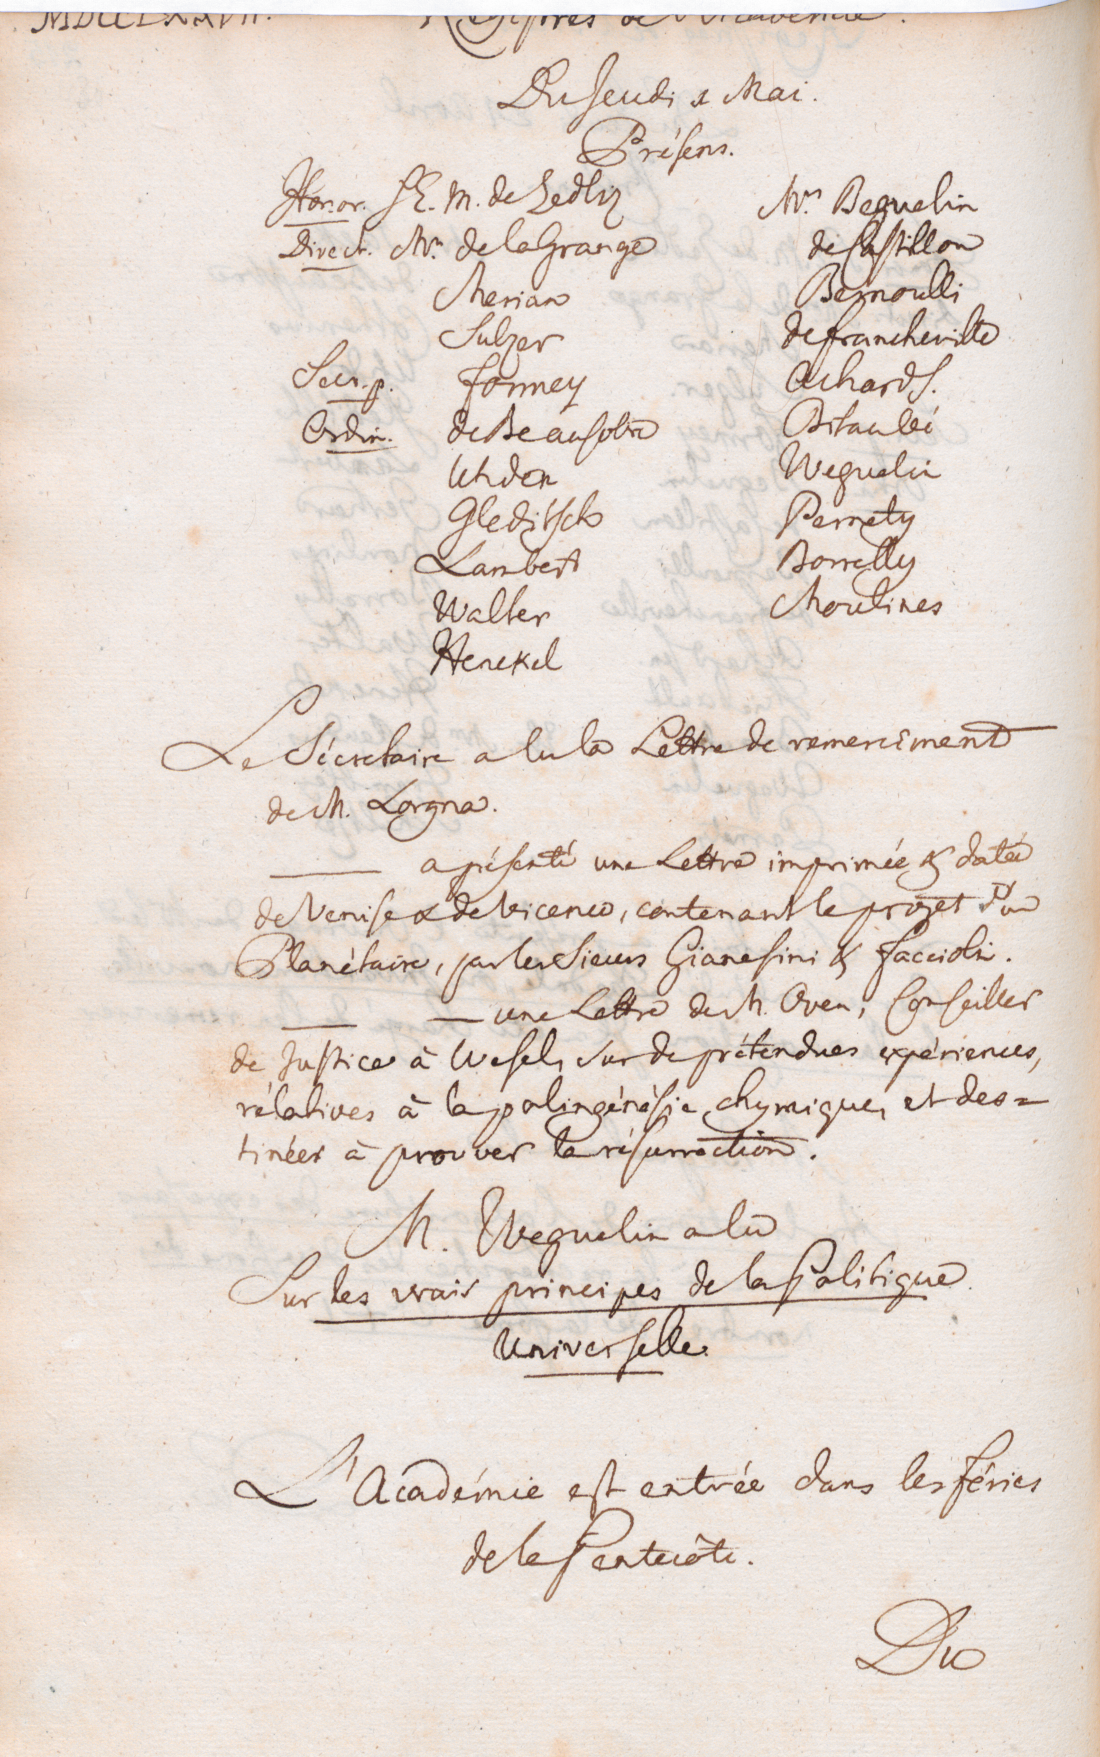 MDCCLXXVII. Registres de l'Académie.
Du Jeudi 1 Mai.
Présens.
Honor. S.E. M. de Zedliz
Direct. Mrs. de la Grange
Merian
Sulzer
Secr. p. Formey
Ordin. de Beausobre
Uhden
Gleditsch
Lambert
Walter
Henckel
Mrs. Beguelin
de Castillon
Bernoulli
de francheville
Achard S.
Bitaubé
Weguelin
Pernety
Borrelly
Moulines
Le Sécretaire a lu la Lettre de remerciment
de M. Lorgna.
——— a présenté une Lettre imprimée & datée
de Venise & de Vicence, contenant le projet d'un
Planétaire, par les Sieurs Gianesini & facciolin.
—— — une Lettre de M. Oven, Conseiller
de Justice à Wesel, sur de prétendues expériences,
rélatives à la palingénésie chymique, et des=
tinées à prouver la résurrection.
M. Weguelin a lu
Sur les vrais principes de la Politique
Universelle.
L'Académie est entrée dans les féries
de la Pentecôte.
Du